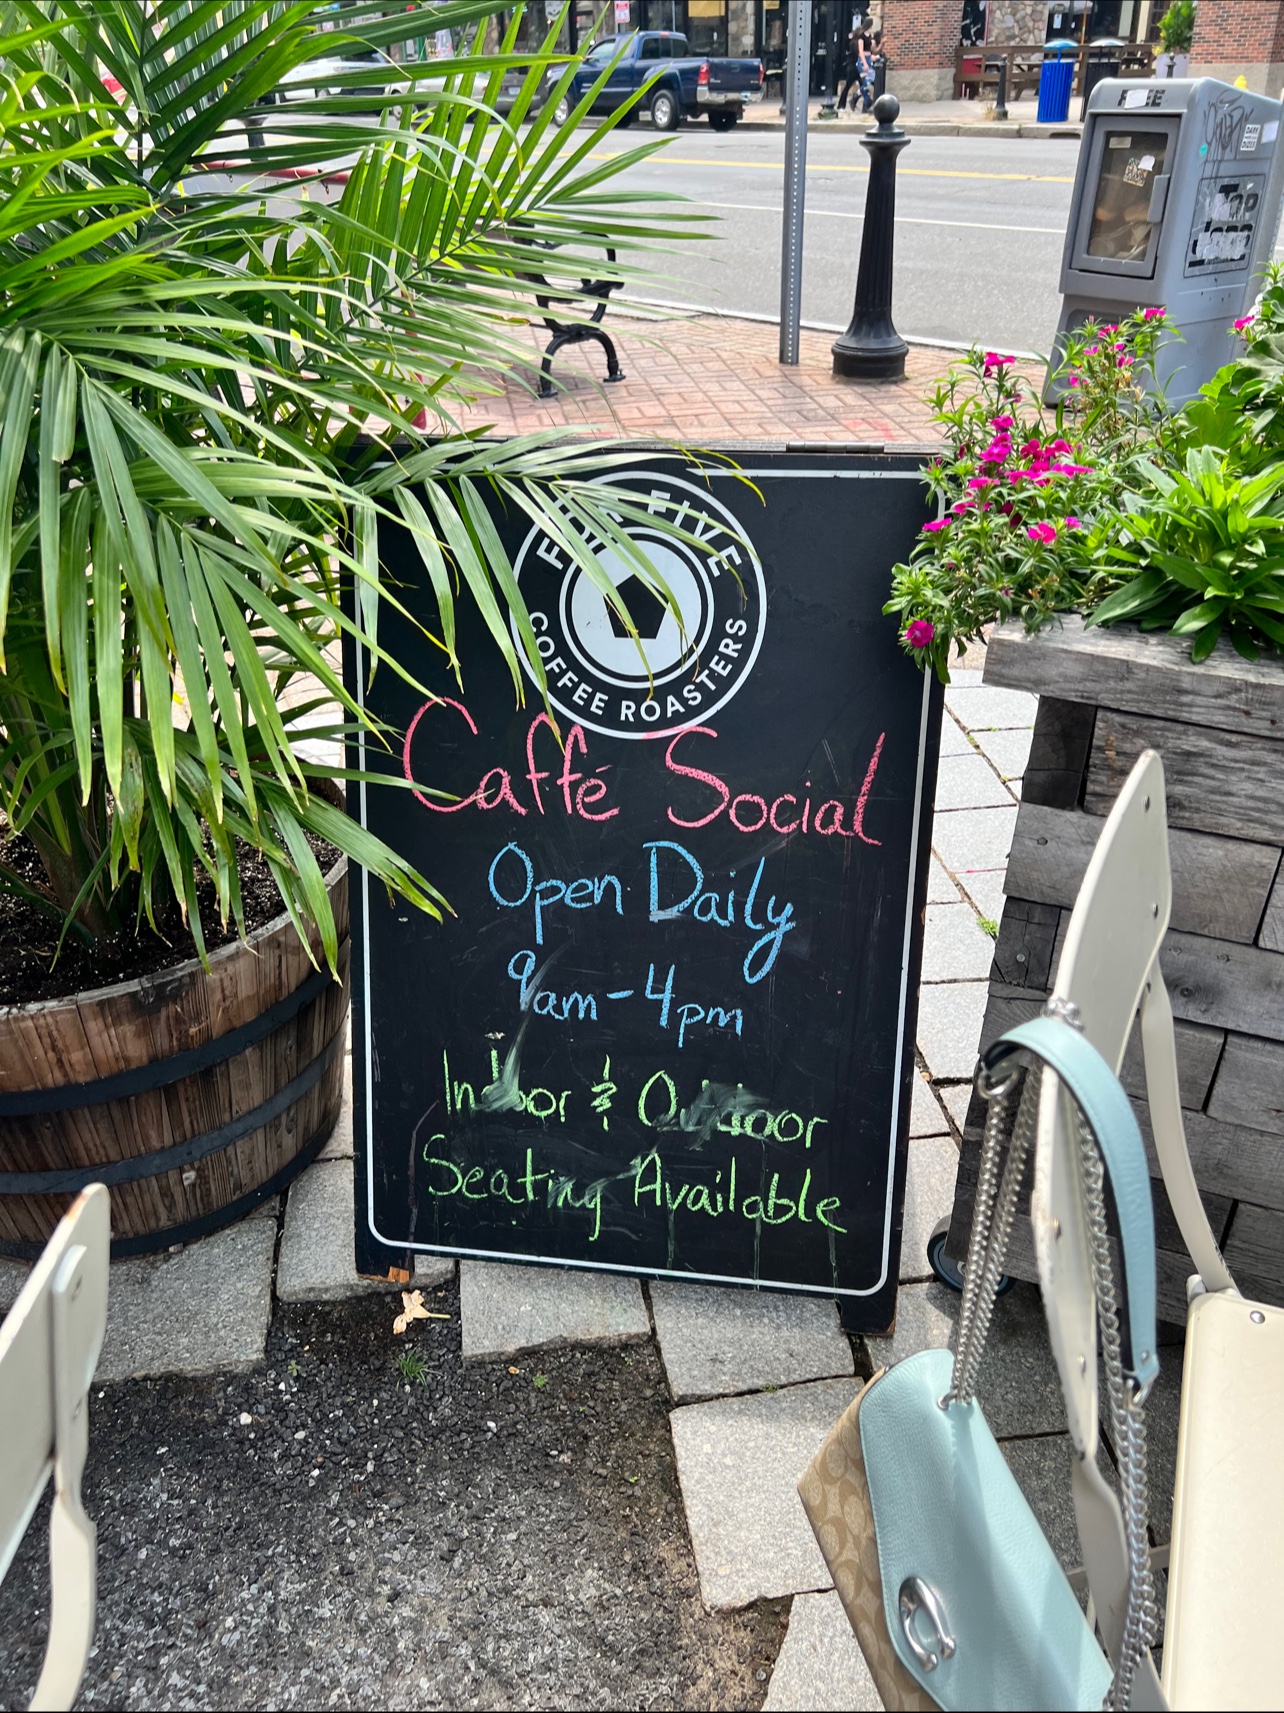 FREE
FIVE
COFFEE ROASTERS
Caffé Social
Open Daily
9am-4pm
Indoor & Outdoor
Seating Available